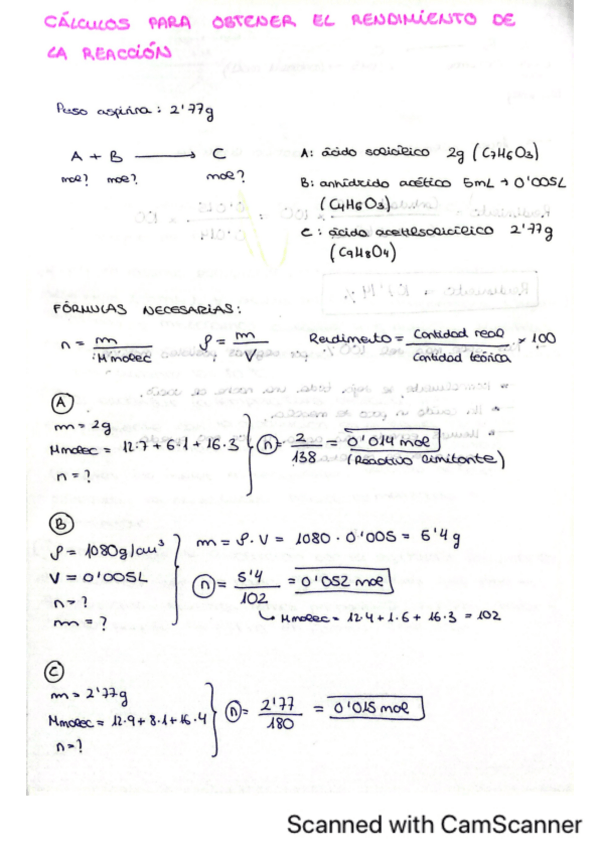 CÁLCULOS PARA OBTENER EL RENDIMIENTO DE
LA REACCIÓN
Peso aspirina: 2'77g
A + B → C
mol? mol? mol?
A: ácido salicílico 2g (C7H6O3)
B: anhídrido acético 5mL → 0'005L
(C4H6O3)
C: ácido acetilsalicílico 2'77g
(C9H8O4)
FÓRMULAS NECESARIAS:
n = m / Mmolec
ρ = m / V
Rendimiento = Cantidad real / Cantidad teórica × 100
A
m = 2g
Mmolec = 12·7 + 6·1 + 16·3
n = ?
n = 2 / 138 = 0'014 mol
(Reactivo limitante)
B
ρ = 1080g/cm³
V = 0'005L
n = ?
m = ?
m = ρ · V = 1080 · 0'005 = 5'4 g
n = 5'4 / 102 = 0'052 mol
↳ Mmolec = 12·4 + 1·6 + 16·3 = 102
C
m = 2'77g
Mmolec = 12·9 + 8·1 + 16·4
n = ?
n = 2'77 / 180 = 0'015 mol
Scanned with CamScanner